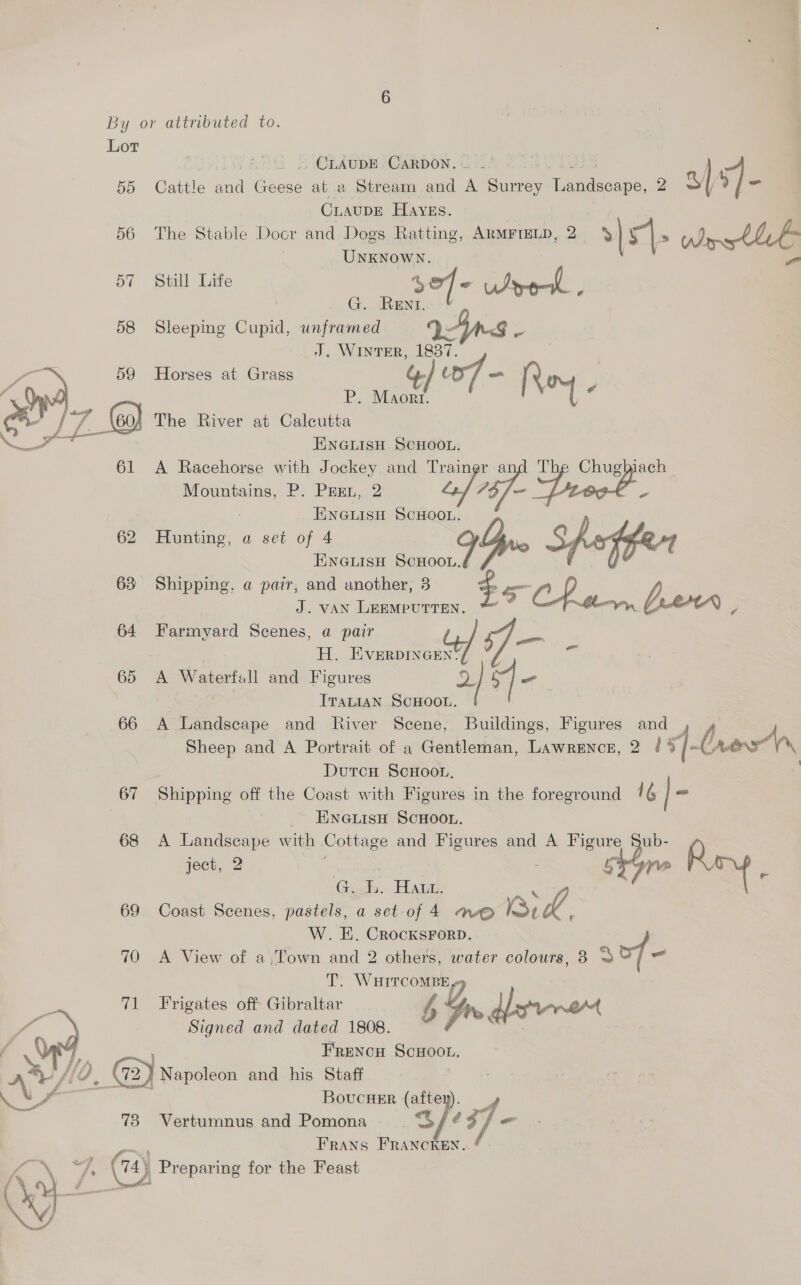 6
By or attributed to.
Lot
CLAUDE CARDON.
55 Cattle and Geese at a Stream and A Surrey Landscape, 2 3/5/-
CLAUDE HAYES.
56 The Stable Door and Dogs Ratting, ARMFIELD, 2 3/5/-
UNKNOWN.
57 Still Life 30/-
G. RENI.
58 Sleeping Cupid, unframed 2 gns
J. WINTER, 1837.
59 Horses at Grass 4/10/- Roy
P. MAORI.
60 The River at Calcutta
ENGLISH SCHOOL.
61 A Racehorse with Jockey and Trainer and The Chughjach
Mountains, P. PEEL, 2
ENGLISH SCHOOL.
62 Hunting, a set of 4
ENGLISH SCHOOL.
63 Shipping, a pair, and another, 3 £5
J. VAN LEEMPUTTEN.
64 Farmyard Scenes, a pair 4/5/-
H. EVERDINGEN.
65 A Waterfall and Figures 2/5/-
ITALIAN SCHOOL.
66 A Landscape and River Scene, Buildings, Figures and
Sheep and A Portrait of a Gentleman, LAWRENCE, 2 15/-
DUTCH SCHOOL.
67 Shipping off the Coast with Figures in the foreground 16/-
ENGLISH SCHOOL.
68 A Landscape with Cottage and Figures and A Figure Sub-
ject, 2 Roy
G. L. HALL.
69 Coast Scenes, pastels, a set of 4 no Bid
W. E. CROCKSFORD.
70 A View of a Town and 2 others, water colours, 3 30/-
T. WHITCOMBE.
71 Frigates off Gibraltar
Signed and dated 1808.
FRENCH SCHOOL.
72 Napoleon and his Staff
BOUCHER (after).
73 Vertumnus and Pomona
FRANS FRANCKEN.
74 Preparing for the Feast